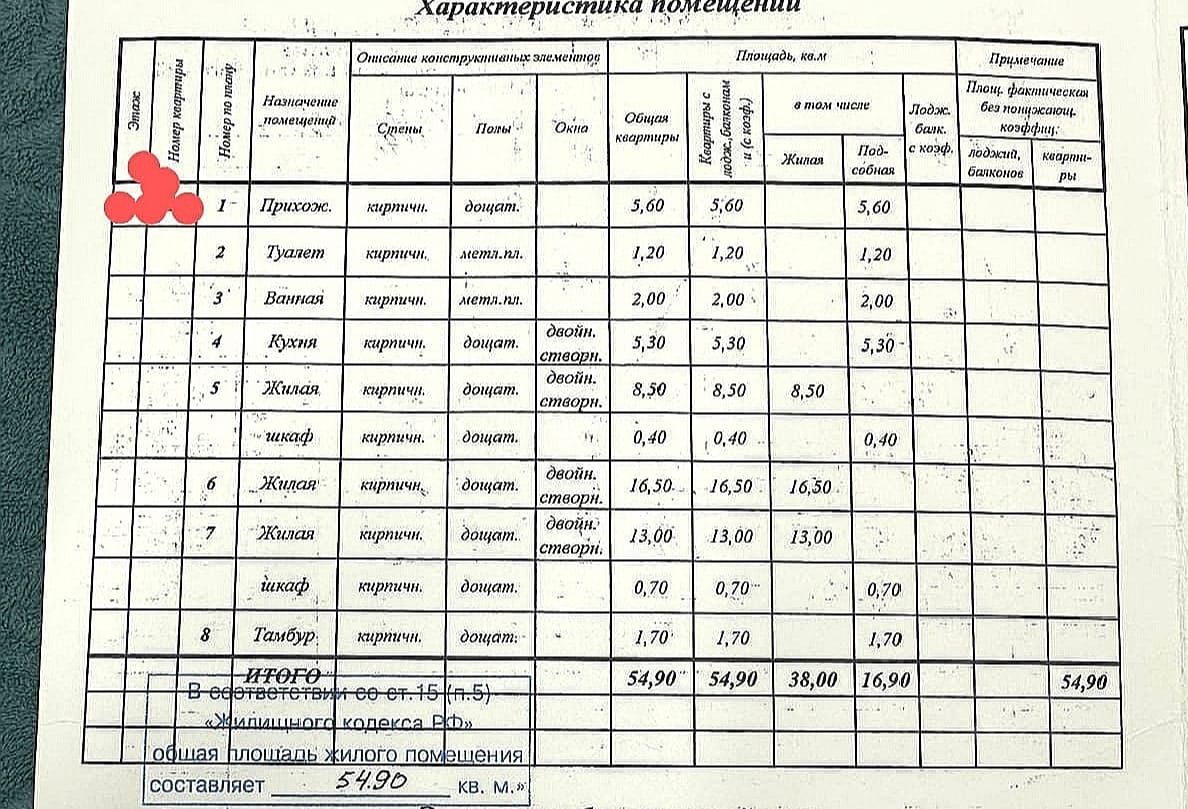 Характеристика помещений
Этаж
Номер квартиры
Номер по плану
Назначение помещений
Описание конструкнивных элементов
Стены
Полы
Окна
Площадь, кв.м
Общая квартиры
Квартиры с лодж.,балконами (с коэф.)
в том числе
Жилая
Под-собная
Лодж. балк. с коэф.
Примечание
Площ. фактическая без понижающ. коэффиц.
лоджий, балконов
кварти-ры
1 Прихож. кирпичн. дощат. 5,60 5,60 5,60
2 Туалет кирпичн. метл.пл. 1,20 1,20 1,20
3 Ванная кирпичн. метл.пл. 2,00 2,00 2,00
4 Кухня кирпичн. дощат. двойн. створн. 5,30 5,30 5,30
5 Жилая кирпичн. дощат. двойн. створн. 8,50 8,50 8,50
шкаф кирпичн. дощат. 0,40 0,40 0,40
6 Жилая кирпичн. дощат. двойн. створн. 16,50 16,50 16,50
7 Жилая кирпичн. дощат. двойн. створн. 13,00 13,00 13,00
шкаф кирпичн. дощат. 0,70 0,70 0,70
8 Тамбур кирпичн. дощат. 1,70 1,70 1,70
ИТОГО 54,90 54,90 38,00 16,90 54,90
В соответствии со ст.15 (п.5)
«Жилищного кодекса РФ»
общая площадь жилого помещения
составляет 54.90 кв. м.»